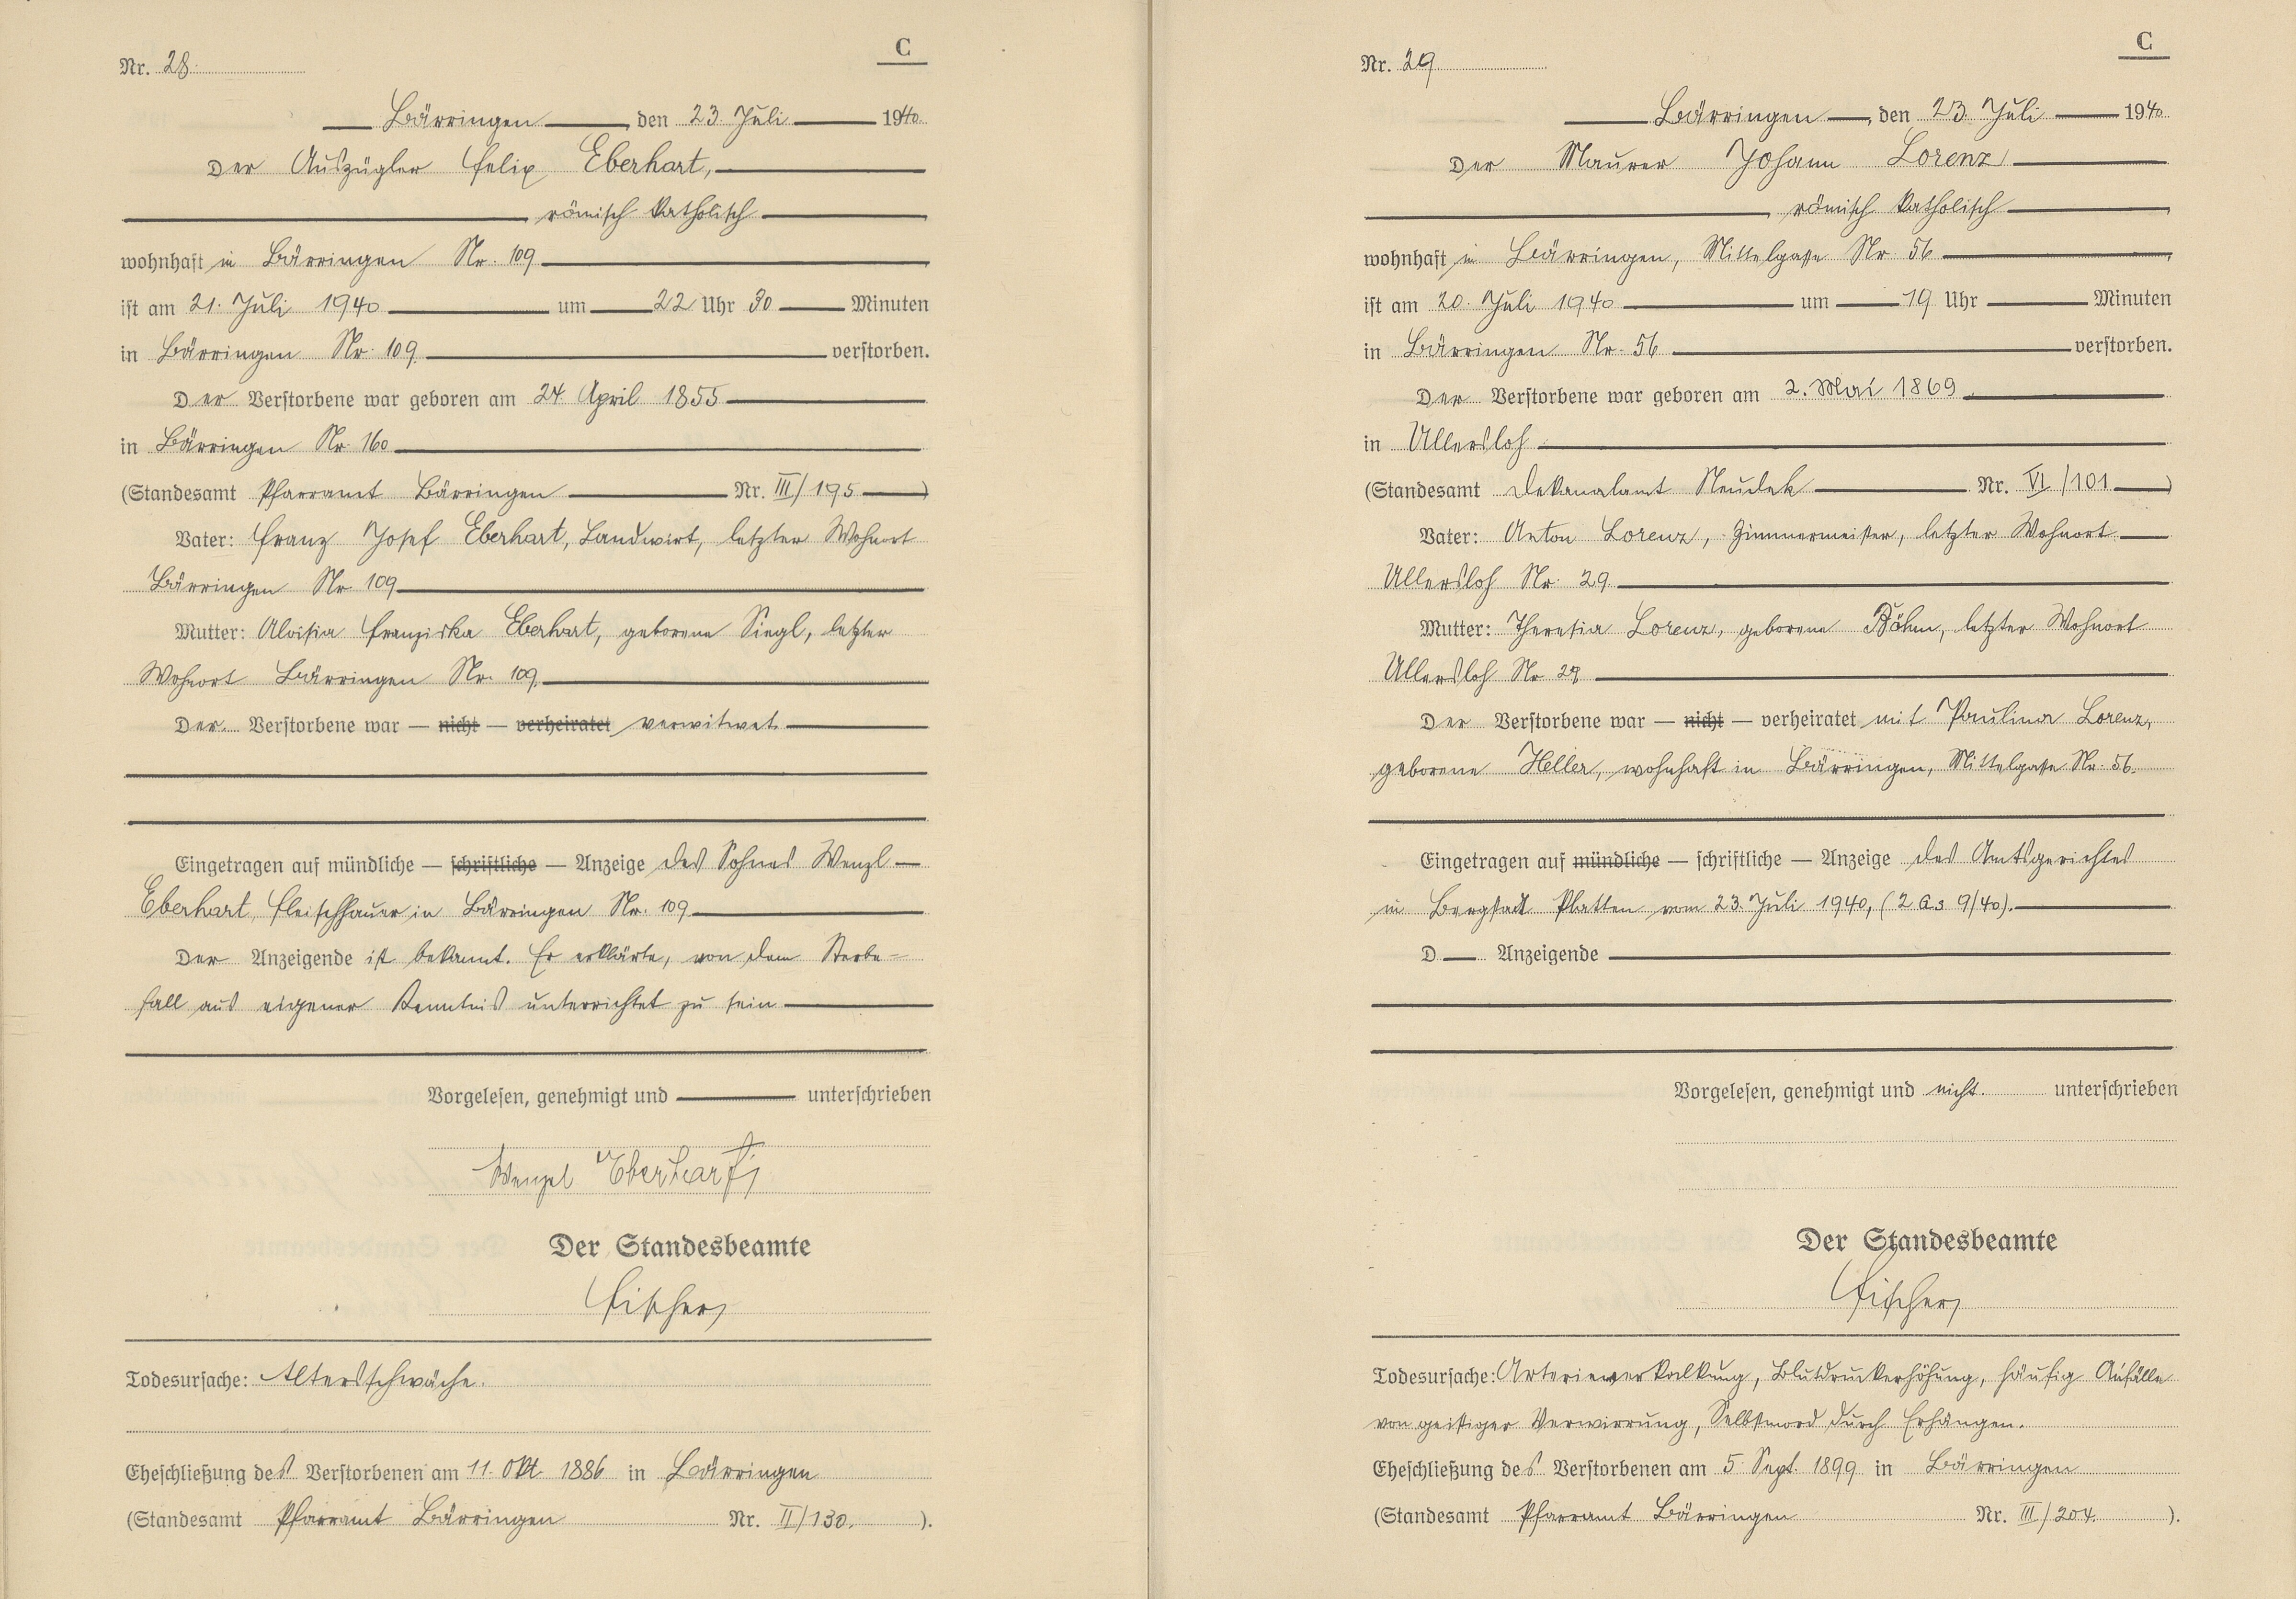 C
Nr. 28.
Bärringen, den 23. Juli 1940.
Der Auszügler Felix Eberhart,
römisch katholisch
wohnhaft in Bärringen Nr. 109
ist am 21. Juli 1940 um 22 Uhr 30 Minuten
in Bärringen Nr. 109. verstorben.
Der Verstorbene war geboren am 24. April 1855
in Bärringen Nr. 160
(Standesamt Pfarramt Bärringen Nr. III/195)
Vater: Franz Josef Eberhart, Landwirt, letzter Wohnort
Bärringen Nr. 109
Mutter: Aloisia Franziska Eberhart, geborene Siegl, letzter
Wohnort Bärringen Nr. 109.
Der Verstorbene war — nicht — verheiratet verwitwet.
Eingetragen auf mündliche — schriftliche — Anzeige des Sohnes Wenzl
Eberhart, Fleischhauer in Bärringen Nr. 109
Der Anzeigende ist bekannt. Er erklärte, von dem Sterbe=
fall aus eigener Kenntnis unterrichtet zu sein
Vorgelesen, genehmigt und unterschrieben
Wenzel Eberhart
Der Standesbeamte
Fischer
Todesursache: Altersschwäche.
Eheschließung des Verstorbenen am 11. Okt. 1886 in Bärringen
(Standesamt Pfarramt Bärringen Nr. II/130.).
C
Nr. 29
Bärringen, den 23. Juli 1940
Der Maurer Johann Lorenz
römisch katholisch
wohnhaft in Bärringen, Mittelgasse Nr. 56
ist am 20. Juli 1940 um 19 Uhr Minuten
in Bärringen Nr. 56 verstorben.
Der Verstorbene war geboren am 2. Mai 1869
in Ullersloh
(Standesamt Dekanalamt Neudek Nr. VI/101)
Vater: Anton Lorenz, Zimmermeister, letzter Wohnort
Ullersloh Nr. 29.
Mutter: Theresia Lorenz, geborene Böhm, letzter Wohnort
Ullersloh Nr. 29
Der Verstorbene war — nicht — verheiratet mit Paulina Lorenz,
geborene Heller, wohnhaft in Bärringen, Mittelgasse Nr. 56.
Eingetragen auf mündliche — schriftliche — Anzeige des Amtsgerichtes
in Bergstadt Platten vom 23. Juli 1940, (2 As 9/40).
D Anzeigende
Vorgelesen, genehmigt und nicht. unterschrieben
Der Standesbeamte
Fischer
Todesursache: Arterienverkalkung, Blutdruckerhöhung, häufig Anfälle
von geistiger Verwirrung, Selbstmord durch Erhängen.
Eheschließung des Verstorbenen am 5. Sept. 1899 in Bärringen
(Standesamt Pfarramt Bärringen Nr. III/204.).